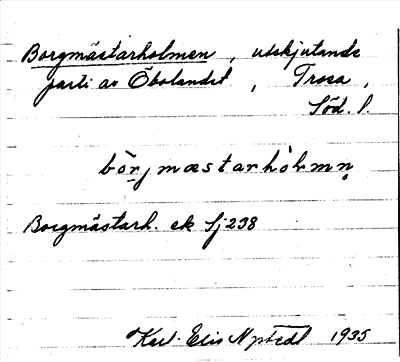 Borgmästarholmen, utskjutande
parti av Öbolandet, Trosa,
Söd. l.
bòrjmæstarhòlmn̥
Borgmästarh. ek Sj 238
Karl-Elis Nystedt 1935